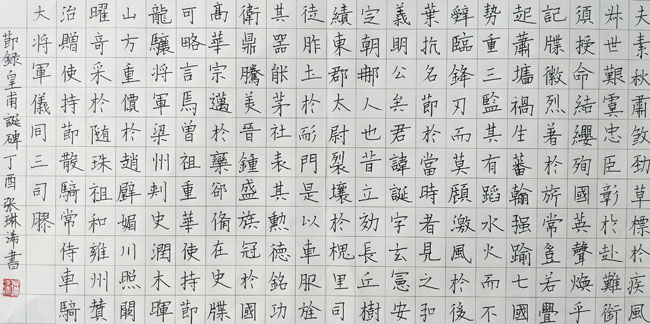 夫素秋肅煞勁草標於疾風
叔世艱虞忠臣彰於赴難銜
須授命結纓殉國英聲煥乎
記牒徽烈著於旂常豈若釁
起蕭墻禍生蕃翰强踰七國
勢重三監其有蹈水火而不
辭臨鋒刃而莫顧激風於後
葉抗名節於當時者見之弘
義明公矣君諱誕字玄憲安
定朝那人也昔立効長丘樹
績東郡太尉裂壤於槐里司
徒胙土於耏門是以車服旌
其器能茅社表其勲德銘功
衛鼎騰美晉鍾盛族冠於國
高華宗邁於欒郤備在史牒
可略言焉曾祖重華使持節
龍驤將軍梁州刺史潤木暉
山方重價於趙璧媚川照闕
曜奇采於随珠祖和雍州贊
治贈使持節散騎常侍車騎
大將軍儀同三司膠
節録皇甫誕碑丁酉張琳濤書